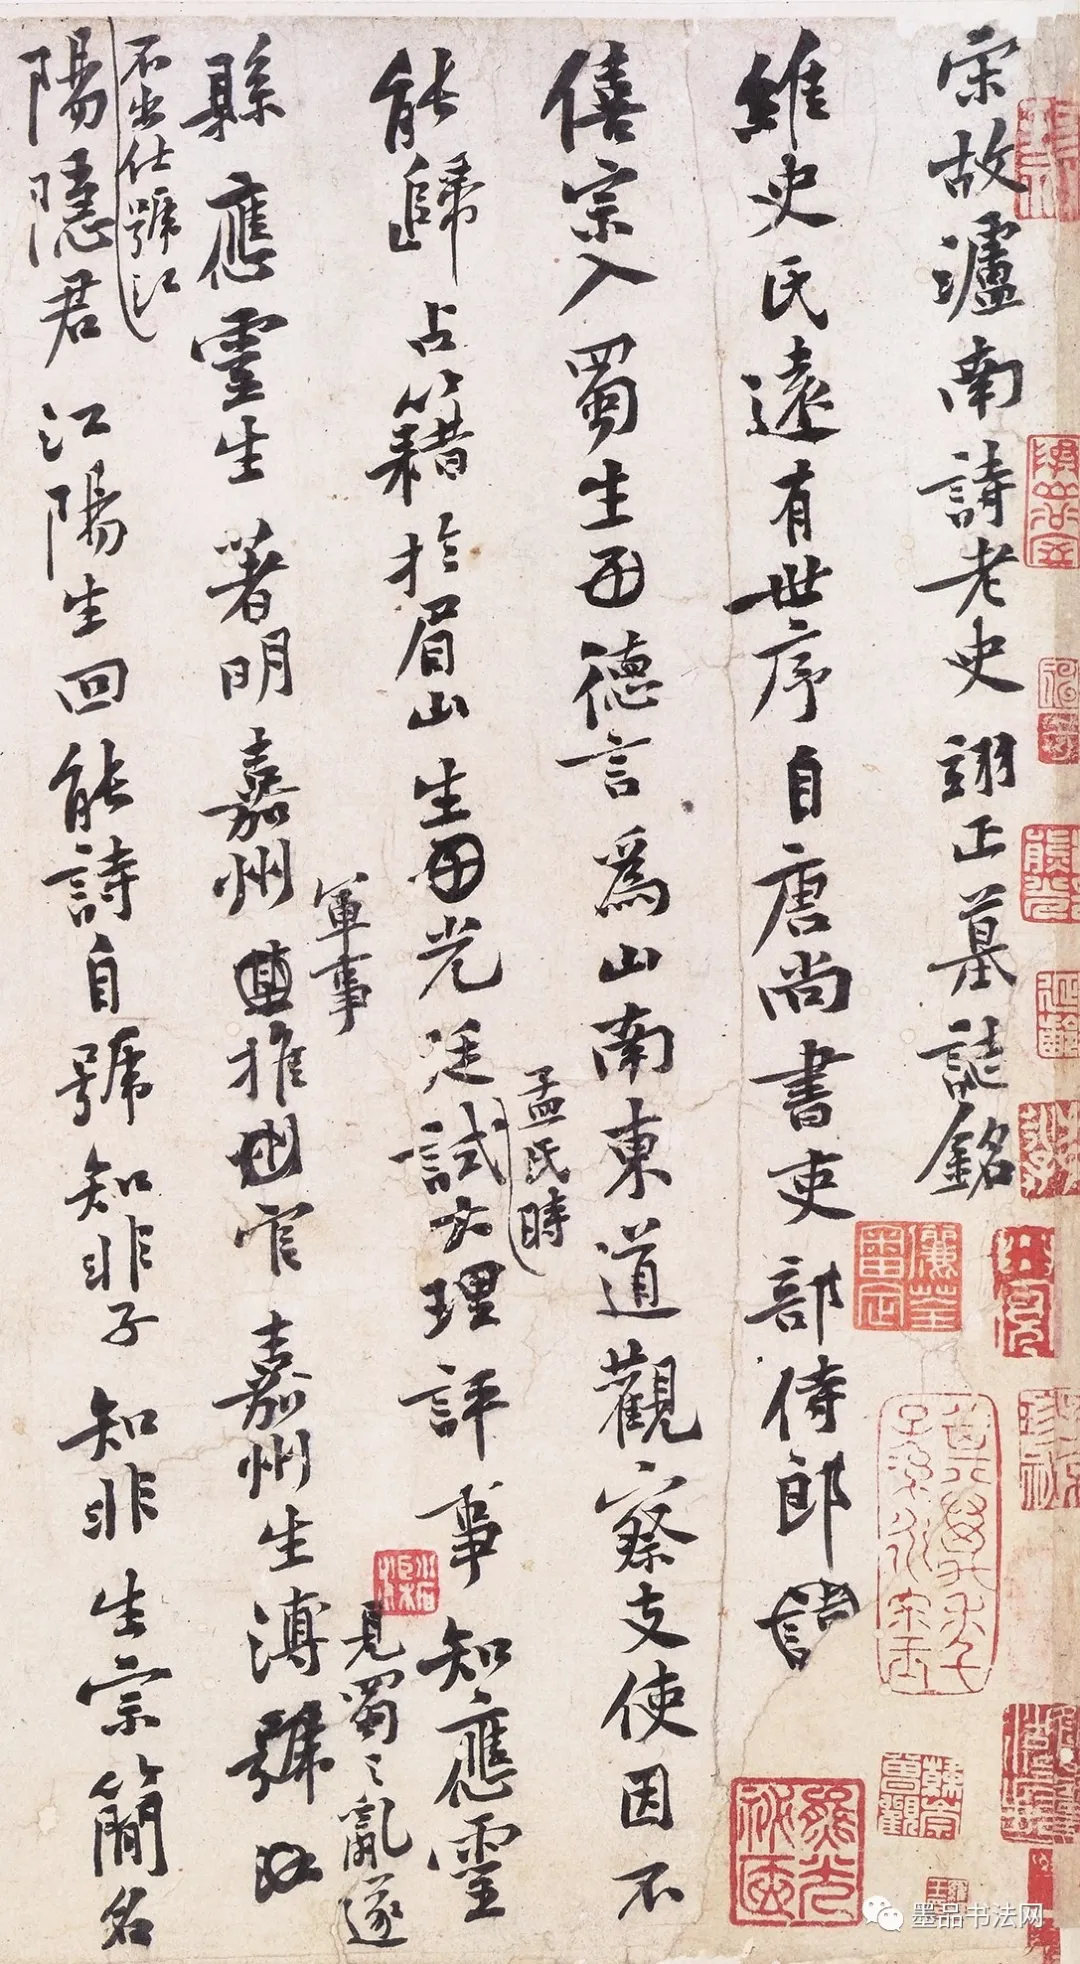 宋故瀘南詩老史翊正墓誌銘
維史氏遠有世序自唐尚書吏部侍郎
僖宗入蜀生德言爲山南東道觀察支使因不
能歸占籍於眉山生光廷試大理評事知應靈
孟氏時
縣應靈生著明嘉州推官嘉州生溥號
軍事
見蜀之亂遂
不出仕號江
陽隱君江陽生回能詩自號知非子知非生宗簡名
墨品书法网